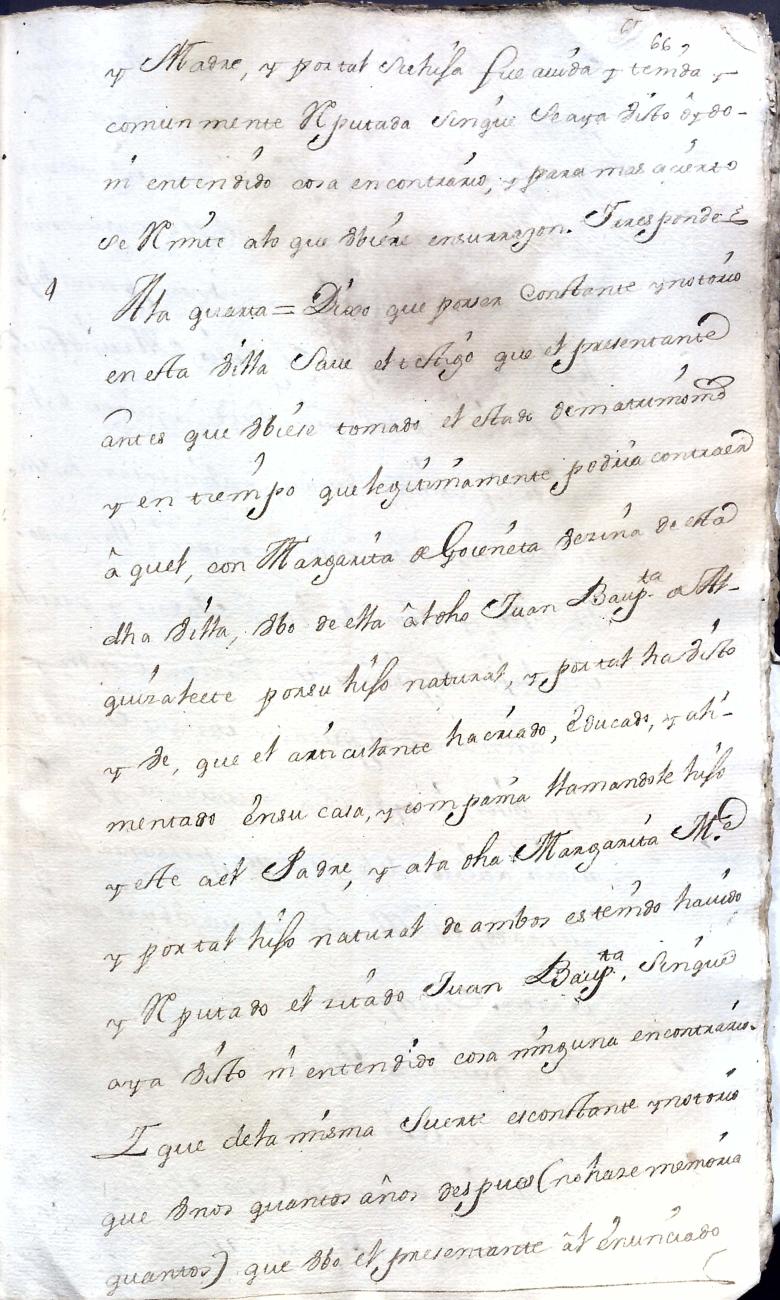 66
y Madre, y por tal su hija fue auida y tenida y
comunmente Reputada sin que se aya visto oydo-
ni entendido cosa encontrario, y para mas acierto
se Remite alo que vbiere ensurrazon. Yresponde
4 Ala quarta = Dixo que porser constante ynotorio
en esta Villa Saue el testigo que el presentante
antes que vbiese tomado el estado dematrimonio
y en tiempo que legitimamente podria contraer
â quel, con Margarita de Goieneta vezina de esta
dha Villa, vbo de ella âl dho Juan Baup.ta de Al-
guizaleete porsu hijo natural, y por tal ha visto
y ve, que el articulante hacriado, educado, y ali-
mentado ensu casa, y compania llamandole hijo
y este aél Padre, y ala dha Margarita M.e
y por tal hijo natural de ambos estenido hauido
y Reputado el zitado Juan Baup.ta, sinque
aya visto ni entendido cosa ninguna encontrario.
Y que dela misma Suerte esconstante ynotorio
que vnos quantos años despues (no haze memoria
quantos) que vbo el presentante âl enunciado